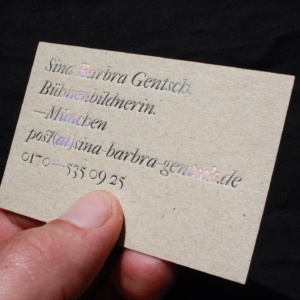 Sina Barbra Gentsch.
Bühnenbildnerin.
—München
post(at)sina-barbra-gentsch.de
0170—535 09 25